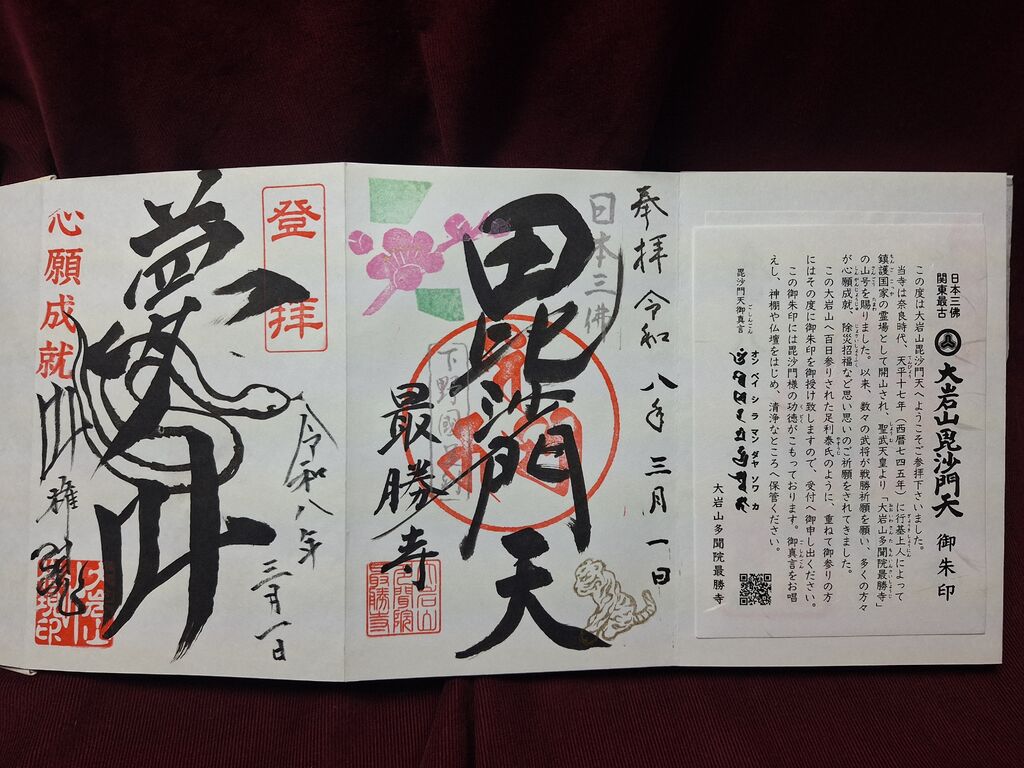 日本三佛
関東最古
大岩山毘沙門天 御朱印
この度は大岩山毘沙門天へようこそご参拝下さいました。
当寺は奈良時代、天平十七年（西暦七四五年）に行基上人によって
鎮護国家の霊場として開山され、聖武天皇より「大岩山多聞院最勝寺」
の山号を賜りました。以来、数々の武将が戦勝祈願を願い、多くの方々
が心願成就、除災招福など思い思いのご祈願をされてきました。
この大岩山へ百日参りされた足利泰氏のように、重ねて御参りの方
にはその度に御朱印を御授け致しますので、受付へ御申し出ください。
この御朱印には毘沙門様の功徳がこもっております。御真言をお唱
えし、神棚や仏壇をはじめ、清浄なところへ保管ください。
毘沙門天御真言
オン ベイ シラ マンダヤ ソワカ
大岩山多聞院最勝寺
奉拝 令和八年三月一日
日本三佛
毘沙門天
下野國
最勝寺
大岩山
多聞院
最勝寺
登拝
令和八年
三月一日
夢叶
心願成就